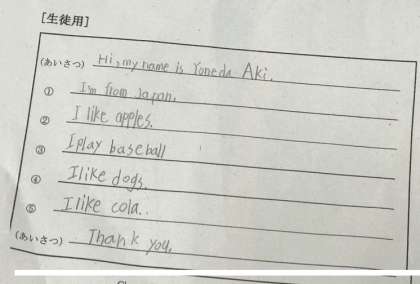 [生徒用]
(あいさつ) Hi, my name is Yoneda Aki.
① I'm from Japan.
② I like apples.
③ I play baseball
④ I like dogs.
⑤ I like cola..
(あいさつ) Thank you.